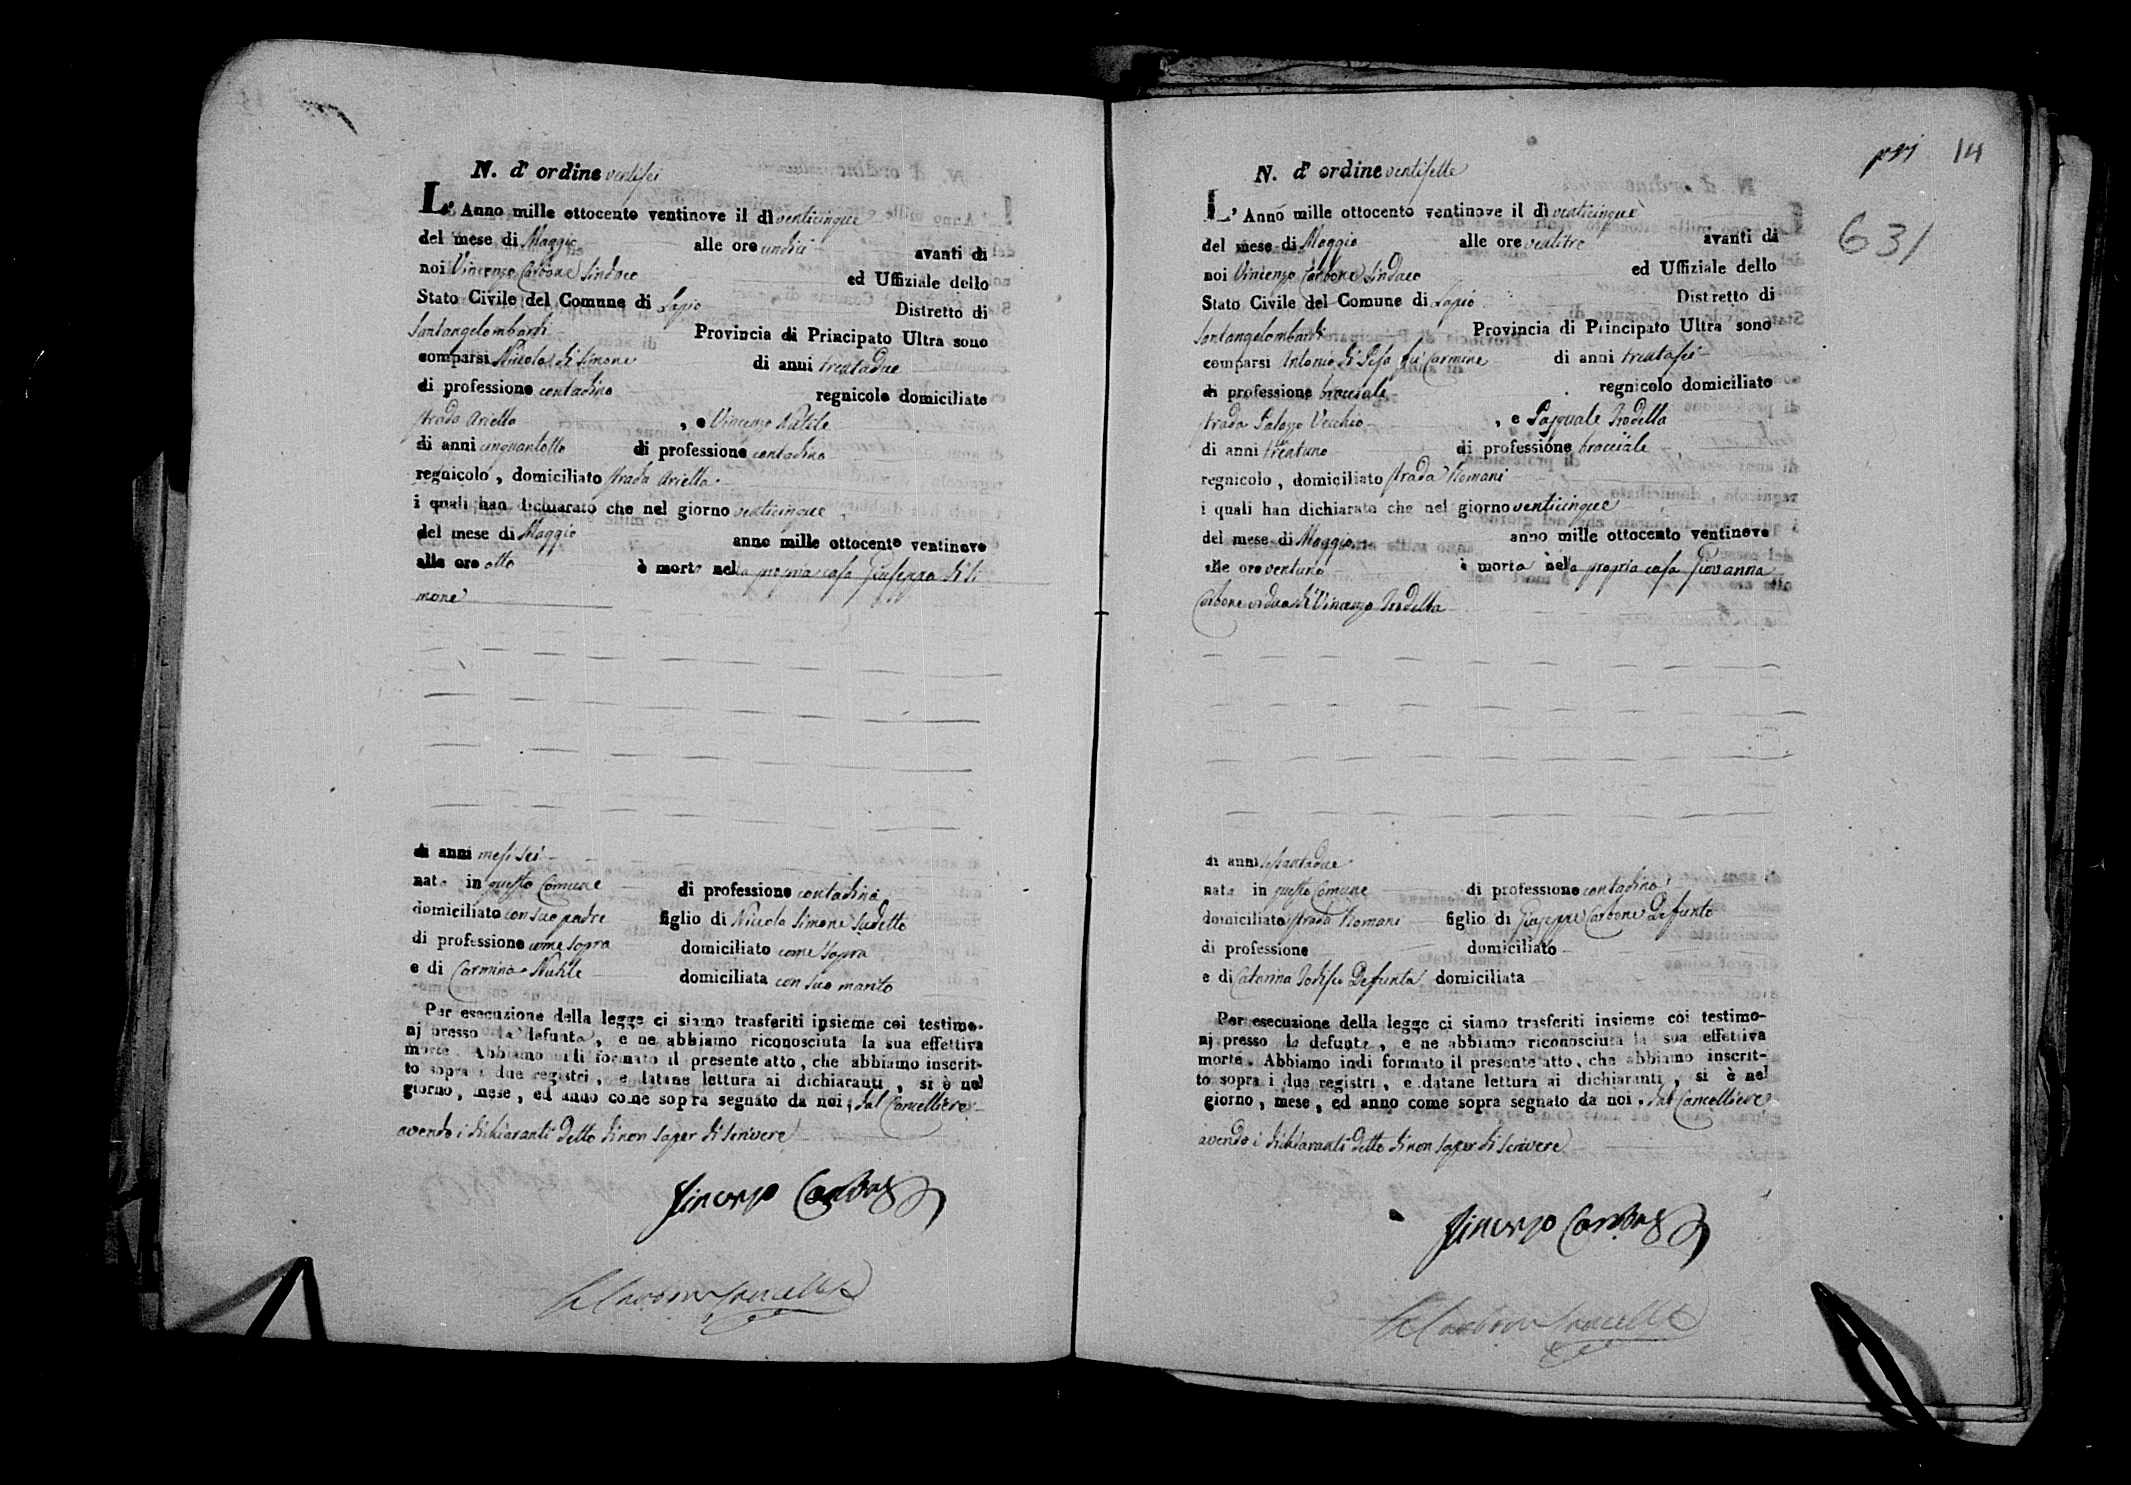 N. d' ordine ventisei
L' Anno mille ottocento ventinove il dì venticinque
del mese di Maggio alle ore undici avanti di
noi Vincenzo Carbone Sindaco ed Uffiziale dello
Stato Civile del Comune di Lapio Distretto di
Santangelombardi Provincia di Principato Ultra sono
comparsi Niccola di Simone di anni trentadue
di professione contadino regnicolo domiciliato
strada Arietta , e Vincenzo Nutile
di anni cinquantotto di professione contadino
regnicolo , domiciliato strada Arietta
i quali han dichiarato che nel giorno venticinque
del mese di Maggio anno mille ottocento ventinove
alle ore otto è morto nella propria casa Giuseppa di Si
mone
di anni mesi sei
nata in questo Comune di professione contadina
domiciliato con suo padre figlio di Niccola Simone sudetto
di professione come sopra domiciliato come sopra
e di Carmina Nutile domiciliata con suo marito
Per esecuzione della legge ci siamo trasferiti insieme coi testimo-
nj presso la defunta , e ne abbiamo riconosciuta la sua effettiva
morte . Abbiamo indi formato il presente atto , che abbiamo inscrit-
to sopra i due registri , e datane lettura ai dichiaranti , si è nel
giorno , mese , ed anno come sopra segnato da noi , dal Cancelliere
avendo i dichiaranti detto di non saper di scrivere
Vincenzo Carbone
pri 14
631
N. d' ordine ventisette
L' Anno mille ottocento ventinove il dì venticinque
del mese di Maggio alle ore ventitre avanti di
noi Vincenzo Carbone Sindaco ed Uffiziale dello
Stato Civile del Comune di Lapio Distretto di
Santangelombardi Provincia di Principato Ultra sono
comparsi Antonio di Gisa fu Carmine di anni trentasei
di professione bracciale regnicolo domiciliato
strada Palazzo Vecchio , e Pasquale Trodella
di anni trentuno di professione bracciale
regnicolo , domiciliato strada Romani
i quali han dichiarato che nel giorno venticinque
del mese di Maggio anno mille ottocento ventinove
alle ore ventuno è morta nella propria casa Giovanna
Carbone vedova di Vincenzo Trodella
di anni sessantadue
nata in questo Comune di professione contadina
domiciliato strada Romani figlio di Giuseppe Carbone Defunto
di professione domiciliato
e di Catarina Defunta domiciliata
Per esecuzione della legge ci siamo trasferiti insieme coi testimo-
nj presso la defunta , e ne abbiamo riconosciuta la sua effettiva
morte . Abbiamo indi formato il presente atto , che abbiamo inscrit-
to sopra i due registri , e datane lettura ai dichiaranti , si è nel
giorno , mese , ed anno come sopra segnato da noi , dal Cancelliere
avendo i dichiaranti detto di non saper di scrivere
Vincenzo Carbone